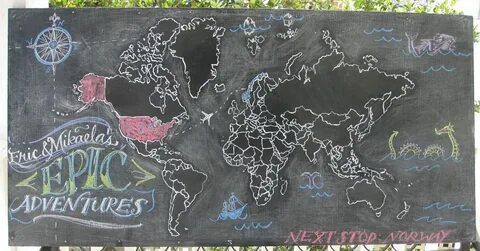 Eric & Mikaela's
EPIC
ADVENTURES
NEXT STOP - NORWAY